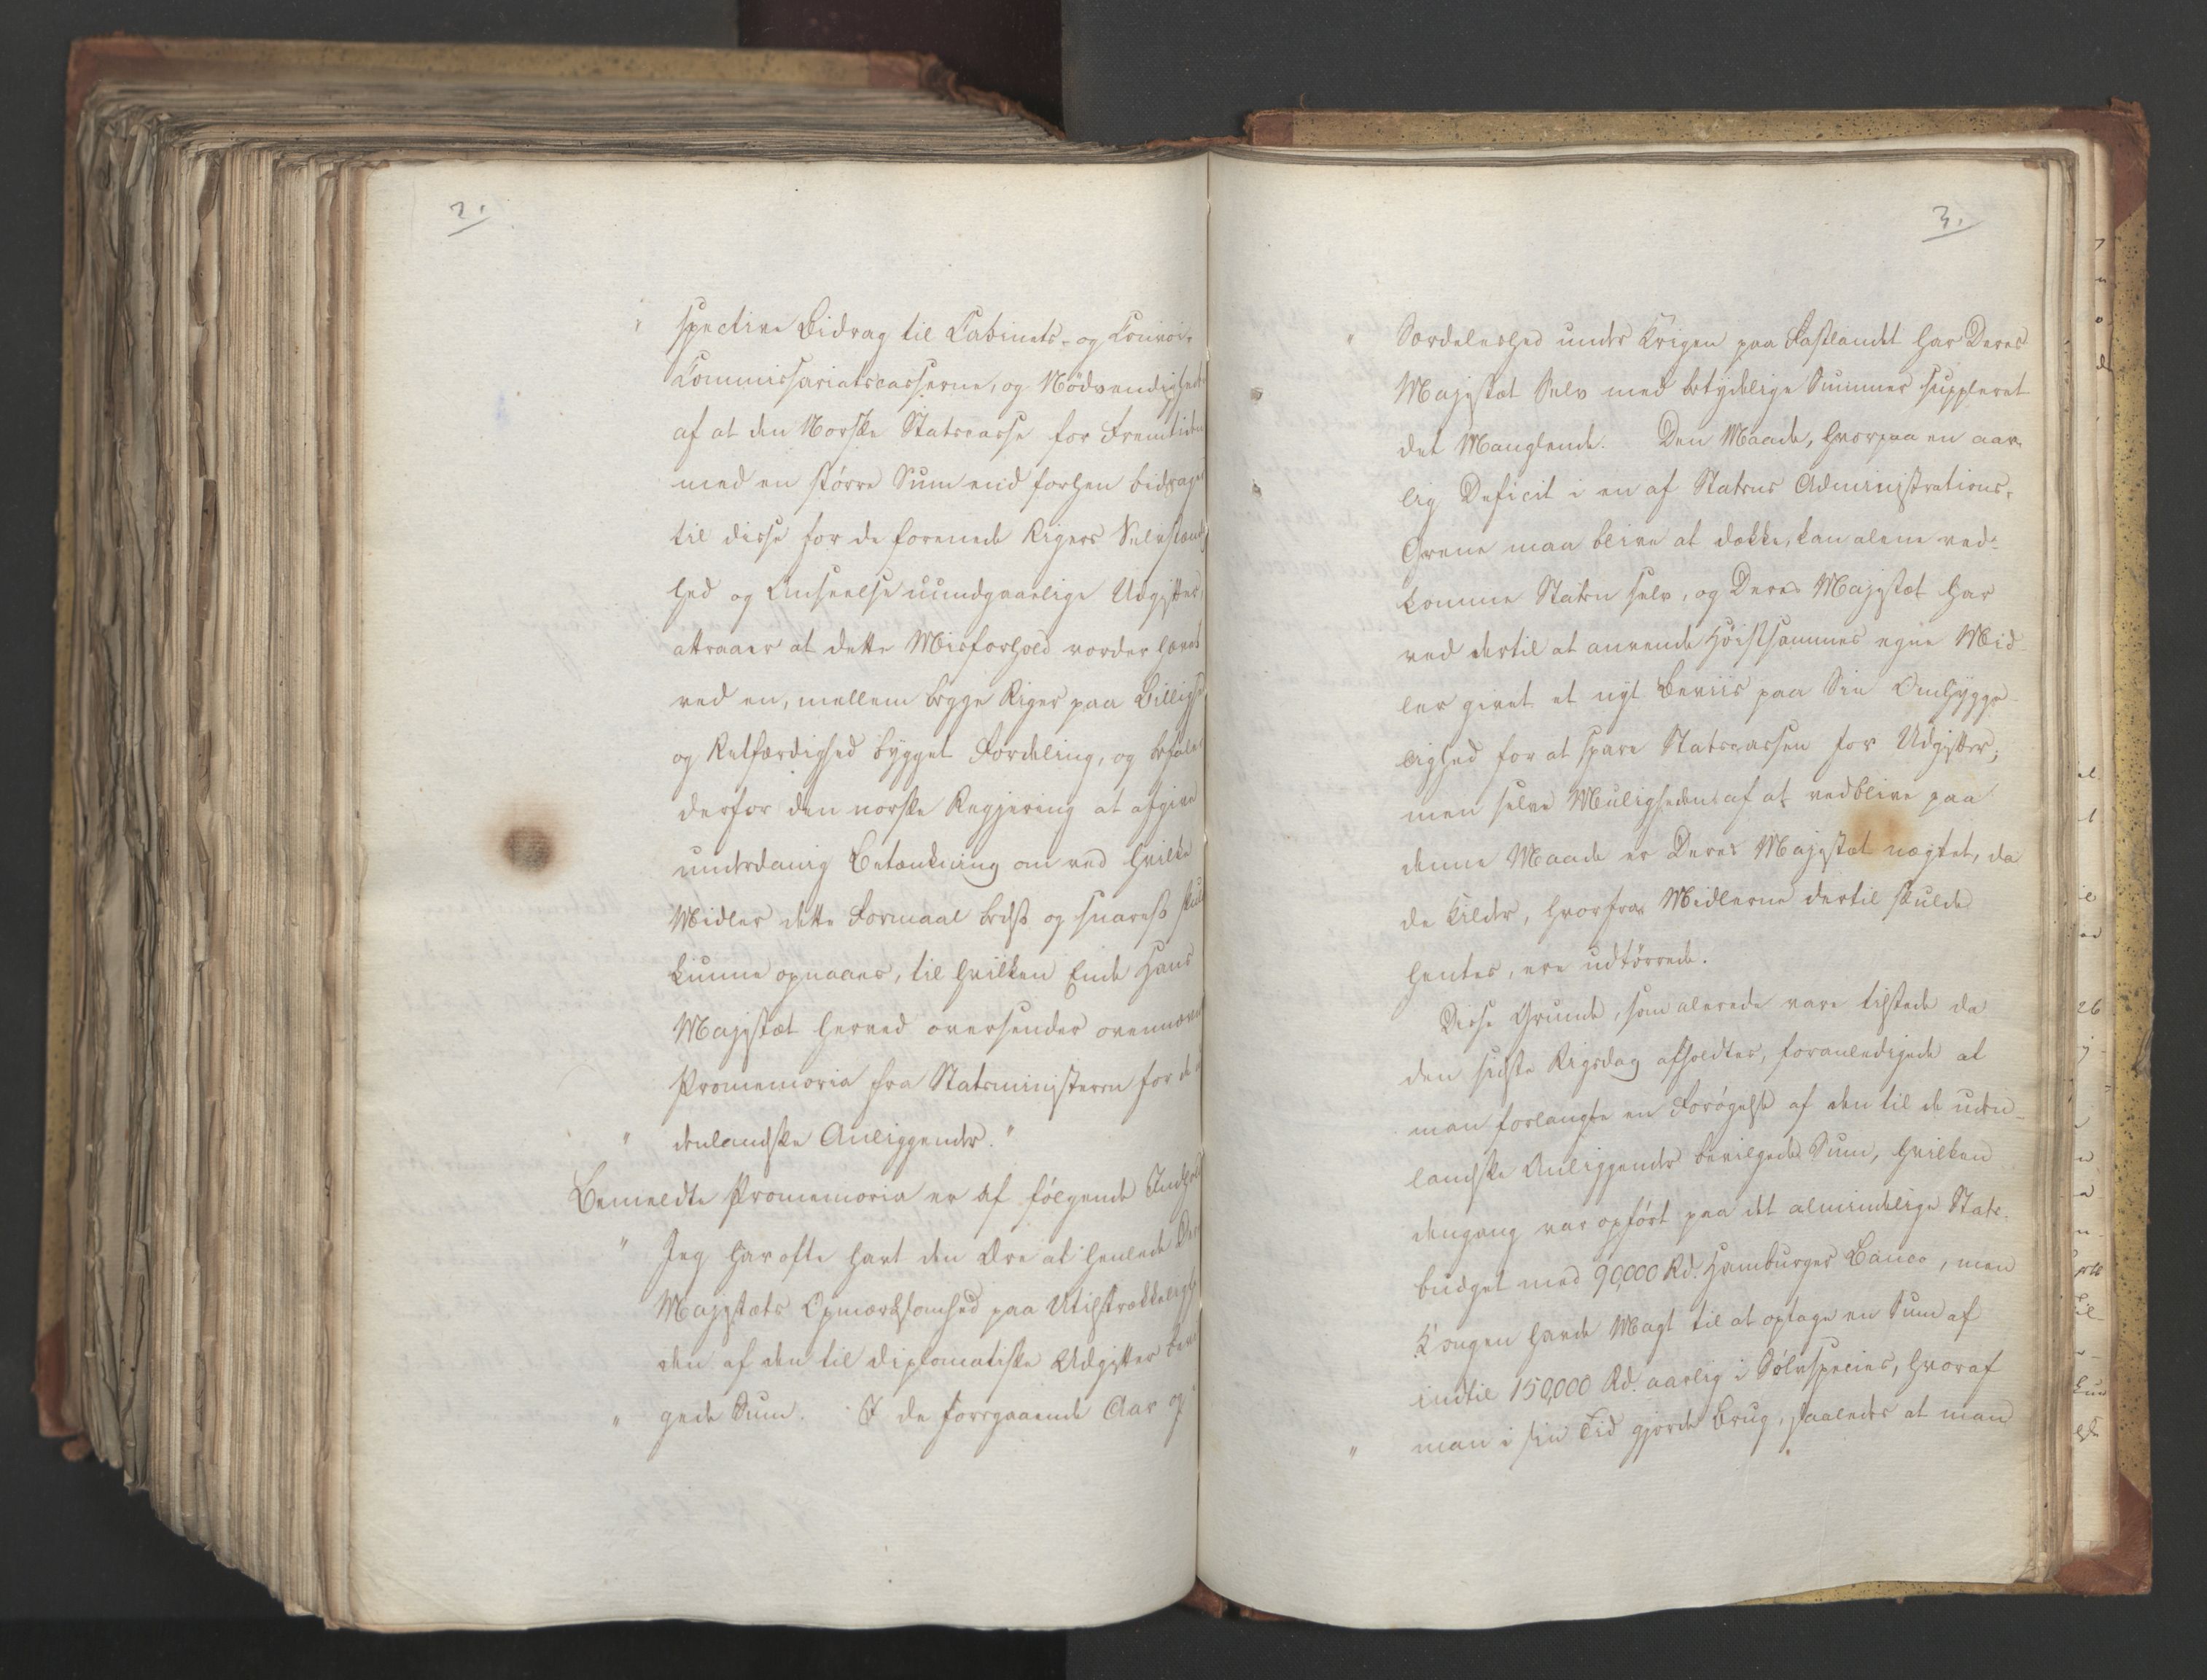 2.
" spective Bidrag til Cabinets- og Convoi-
Commissariatscasserne, og Nødvendighed
af at den Norske Statscasse for Fremtiden
med en større Sum end forhen bidrager
til disse for de forenede Rigers Selvstændig
hed og Anseelse uundgaaelige Udgifter,
attraaer at dette Misforhold vorder hævet
ved en, mellem begge Riger paa Billighed
og Retfærdighed bygget Fordeling, og befaler
derfor den norske Regjering at afgive
underdanig Betænkning om ved hvilke
Midler dette Formaal bedst og snarest skulde
kunne opnaaes, til hvilken Ende Hans
Majestæt herved oversender ovennævnte
Promemoria fra Statsministeren for de u
" denlandske Anliggender."
Bemeldte Promemoria er af følgende Indhold
" Jeg har ofte havt den Ære at henlede Deres
Majestæts Opmærksomhed paa Utilstrækkelighe
den af den til diplomatiske Udgifter bevil
" gede Sum. I de foregaaende Aar og i
3.
" Særdeleshed under Krigen paa Fastlandet har Deres
Majestæt Selv med betydelige Summer suppleret
det Manglende. Den Maade, hvorpaa en aar-
lig Deficit i en af Statens Administrations-
Grene maa blive at dække, kan alene ved-
komme Staten selv, og Deres Majestæt har
ved dertil at anvende Høistsammes egne Mid-
ler givet et nyt Beviis paa Sin Omhygge-
lighed for at spare Statscassen for Udgifter;
men selve Muligheden af at vedblive paa
denne Maade er Deres Majestæt nægtet, da
de Kilder, hvorfra Midlerne dertil skulde
hentes, ere udtørrede.
Disse Grunde, som alerede vare tilstede da
den sidste Rigsdag afholdtes, foranledigede at
man forlangte en Forøgelse af den til de uden-
landske Anliggender bevilgede Sum, hvilken
dengang var opført paa det almindelige Stats-
budget med 90,000 Rd. Hamburger Banco, men
Kongen havde Magt til at optage en Sum af
indtil 150,000 Rd. aarlig i Sølvspecies, hvoraf
" man i sin Tid gjorde Brug, saaledes at man